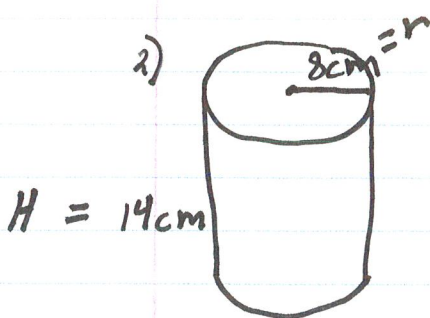 2)
8cm = r
H = 14cm